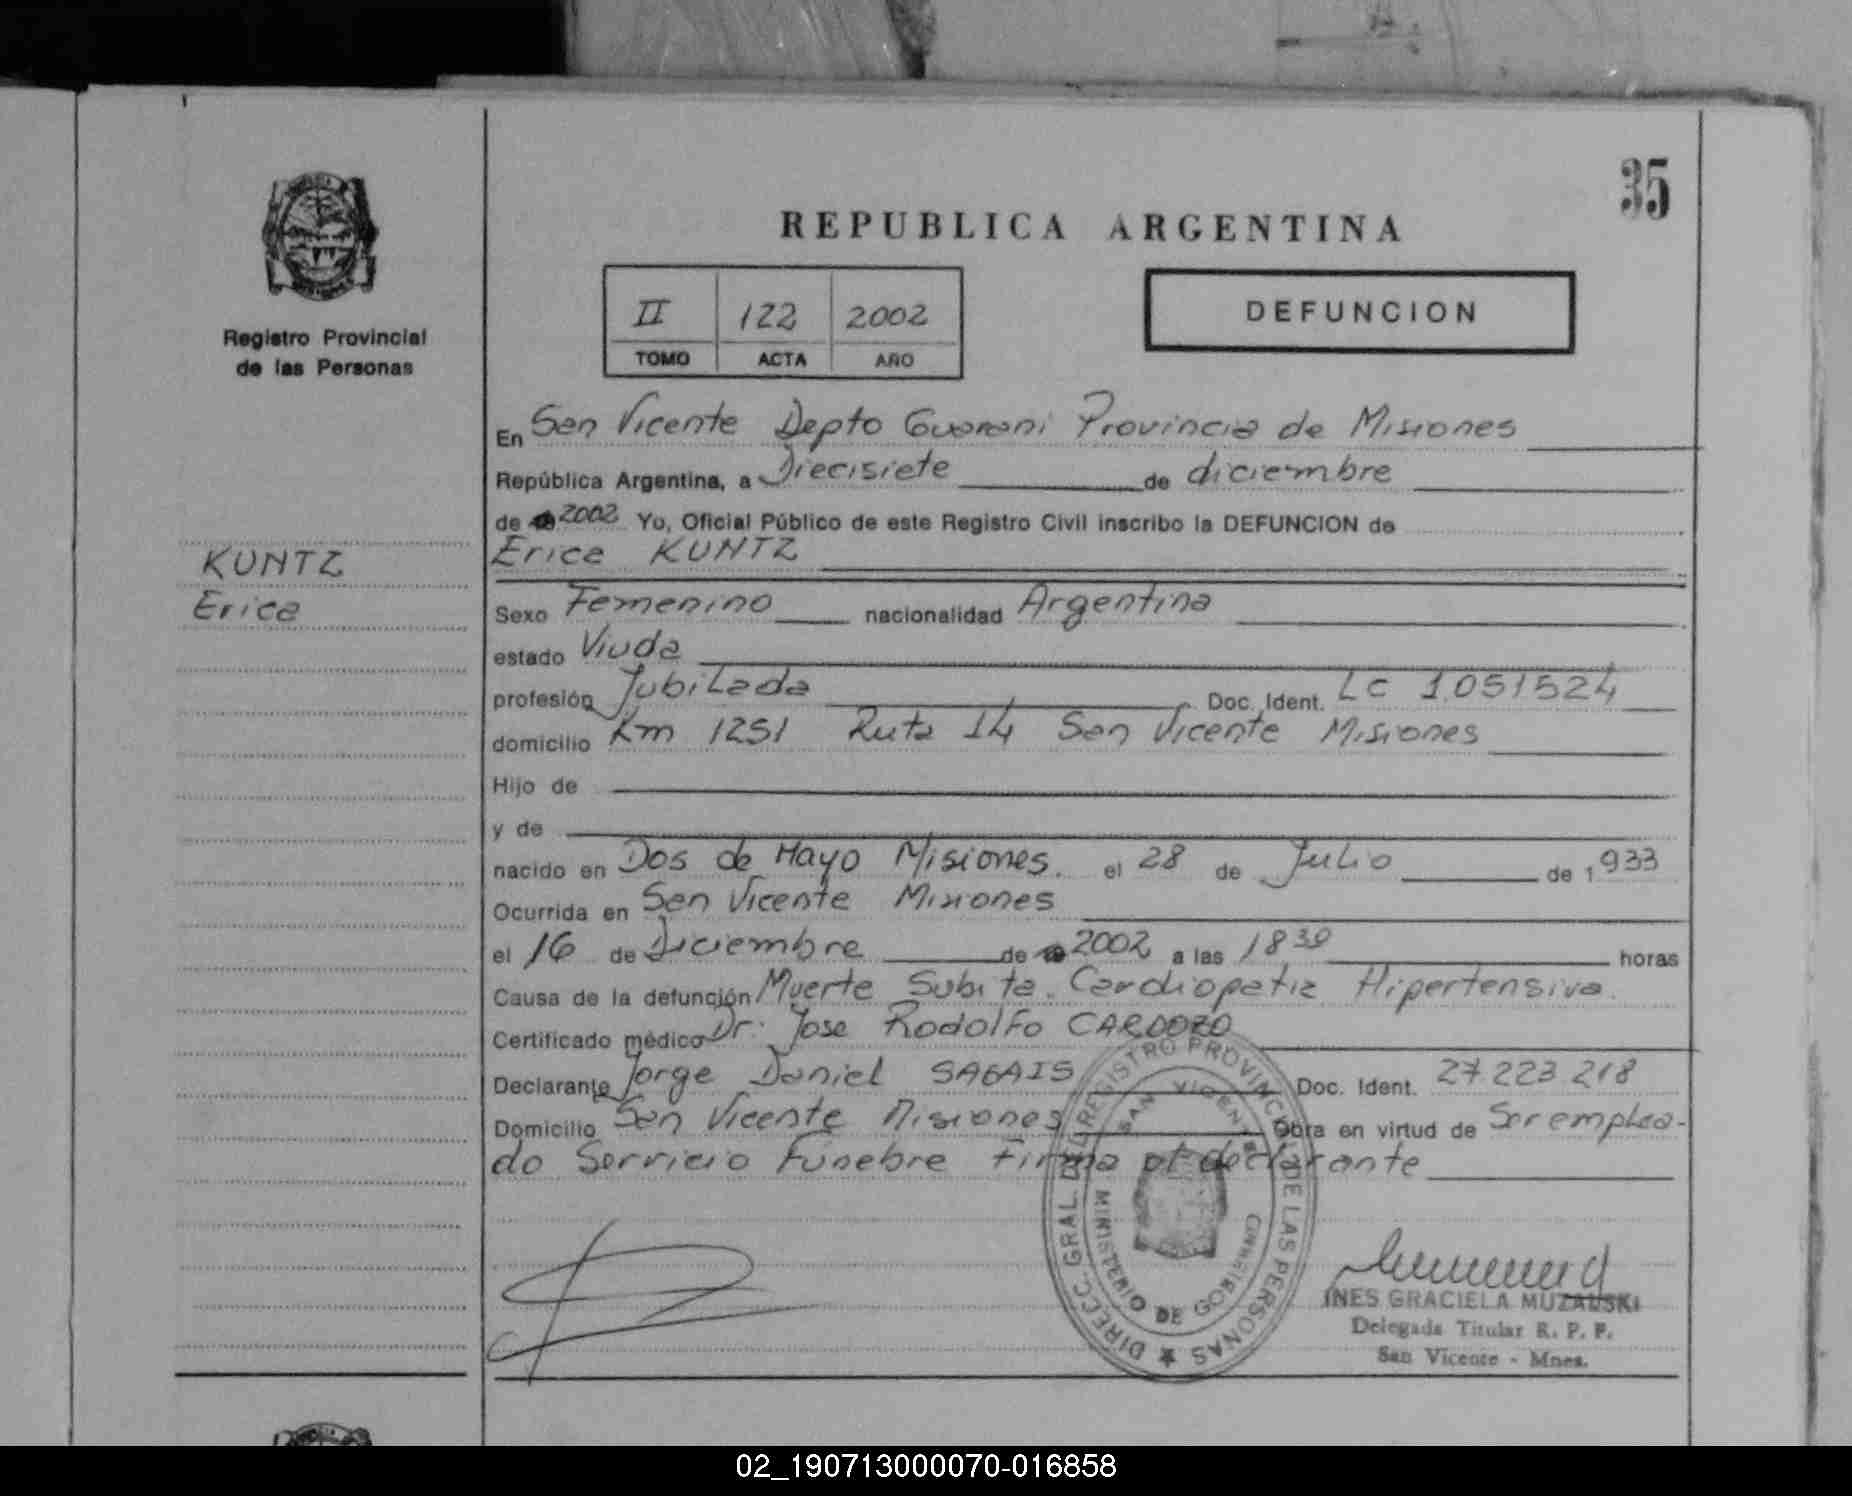 35
REPUBLICA ARGENTINA
II 122 2002
TOMO ACTA AÑO
DEFUNCION
Registro Provincial
de las Personas
KUNTZ
Erica
En San Vicente Depto Guarani Provincia de Misiones
República Argentina, a Diecisiete de diciembre
de 2002 Yo, Oficial Público de este Registro Civil inscribo la DEFUNCION de
Erica KUNTZ
Sexo Femenino nacionalidad Argentina
estado Viuda
profesión Jubilada Doc. Ident. LC 1.051524
domicilio Km 1251 Ruta 14 San Vicente Misiones
Hijo de
y de
nacido en Dos de Mayo Misiones. el 28 de Julio de 1933
Ocurrida en San Vicente Misiones
el 16 de Diciembre de 2002 a las 1830 horas
Causa de la defunción Muerte Subita. Cardiopatia Hipertensiva.
Certificado médico Dr: Jose Rodolfo CARDOZO
Declarante Jorge Daniel Doc. Ident. 27.223.218
Domicilio San Vicente Misiones Obra en virtud de Ser emplea-
do Servicio Funebre Firma el declarante
DIRECC. GRAL. DEL REGISTRO PROVINCIAL DE LAS PERSONAS
SAN VICENTE
MINISTERIO DE GOBIERNO
INES GRACIELA MUZALSKI
Delegada Titular R. P. P.
San Vicente - Mnes.
02_190713000070-016858